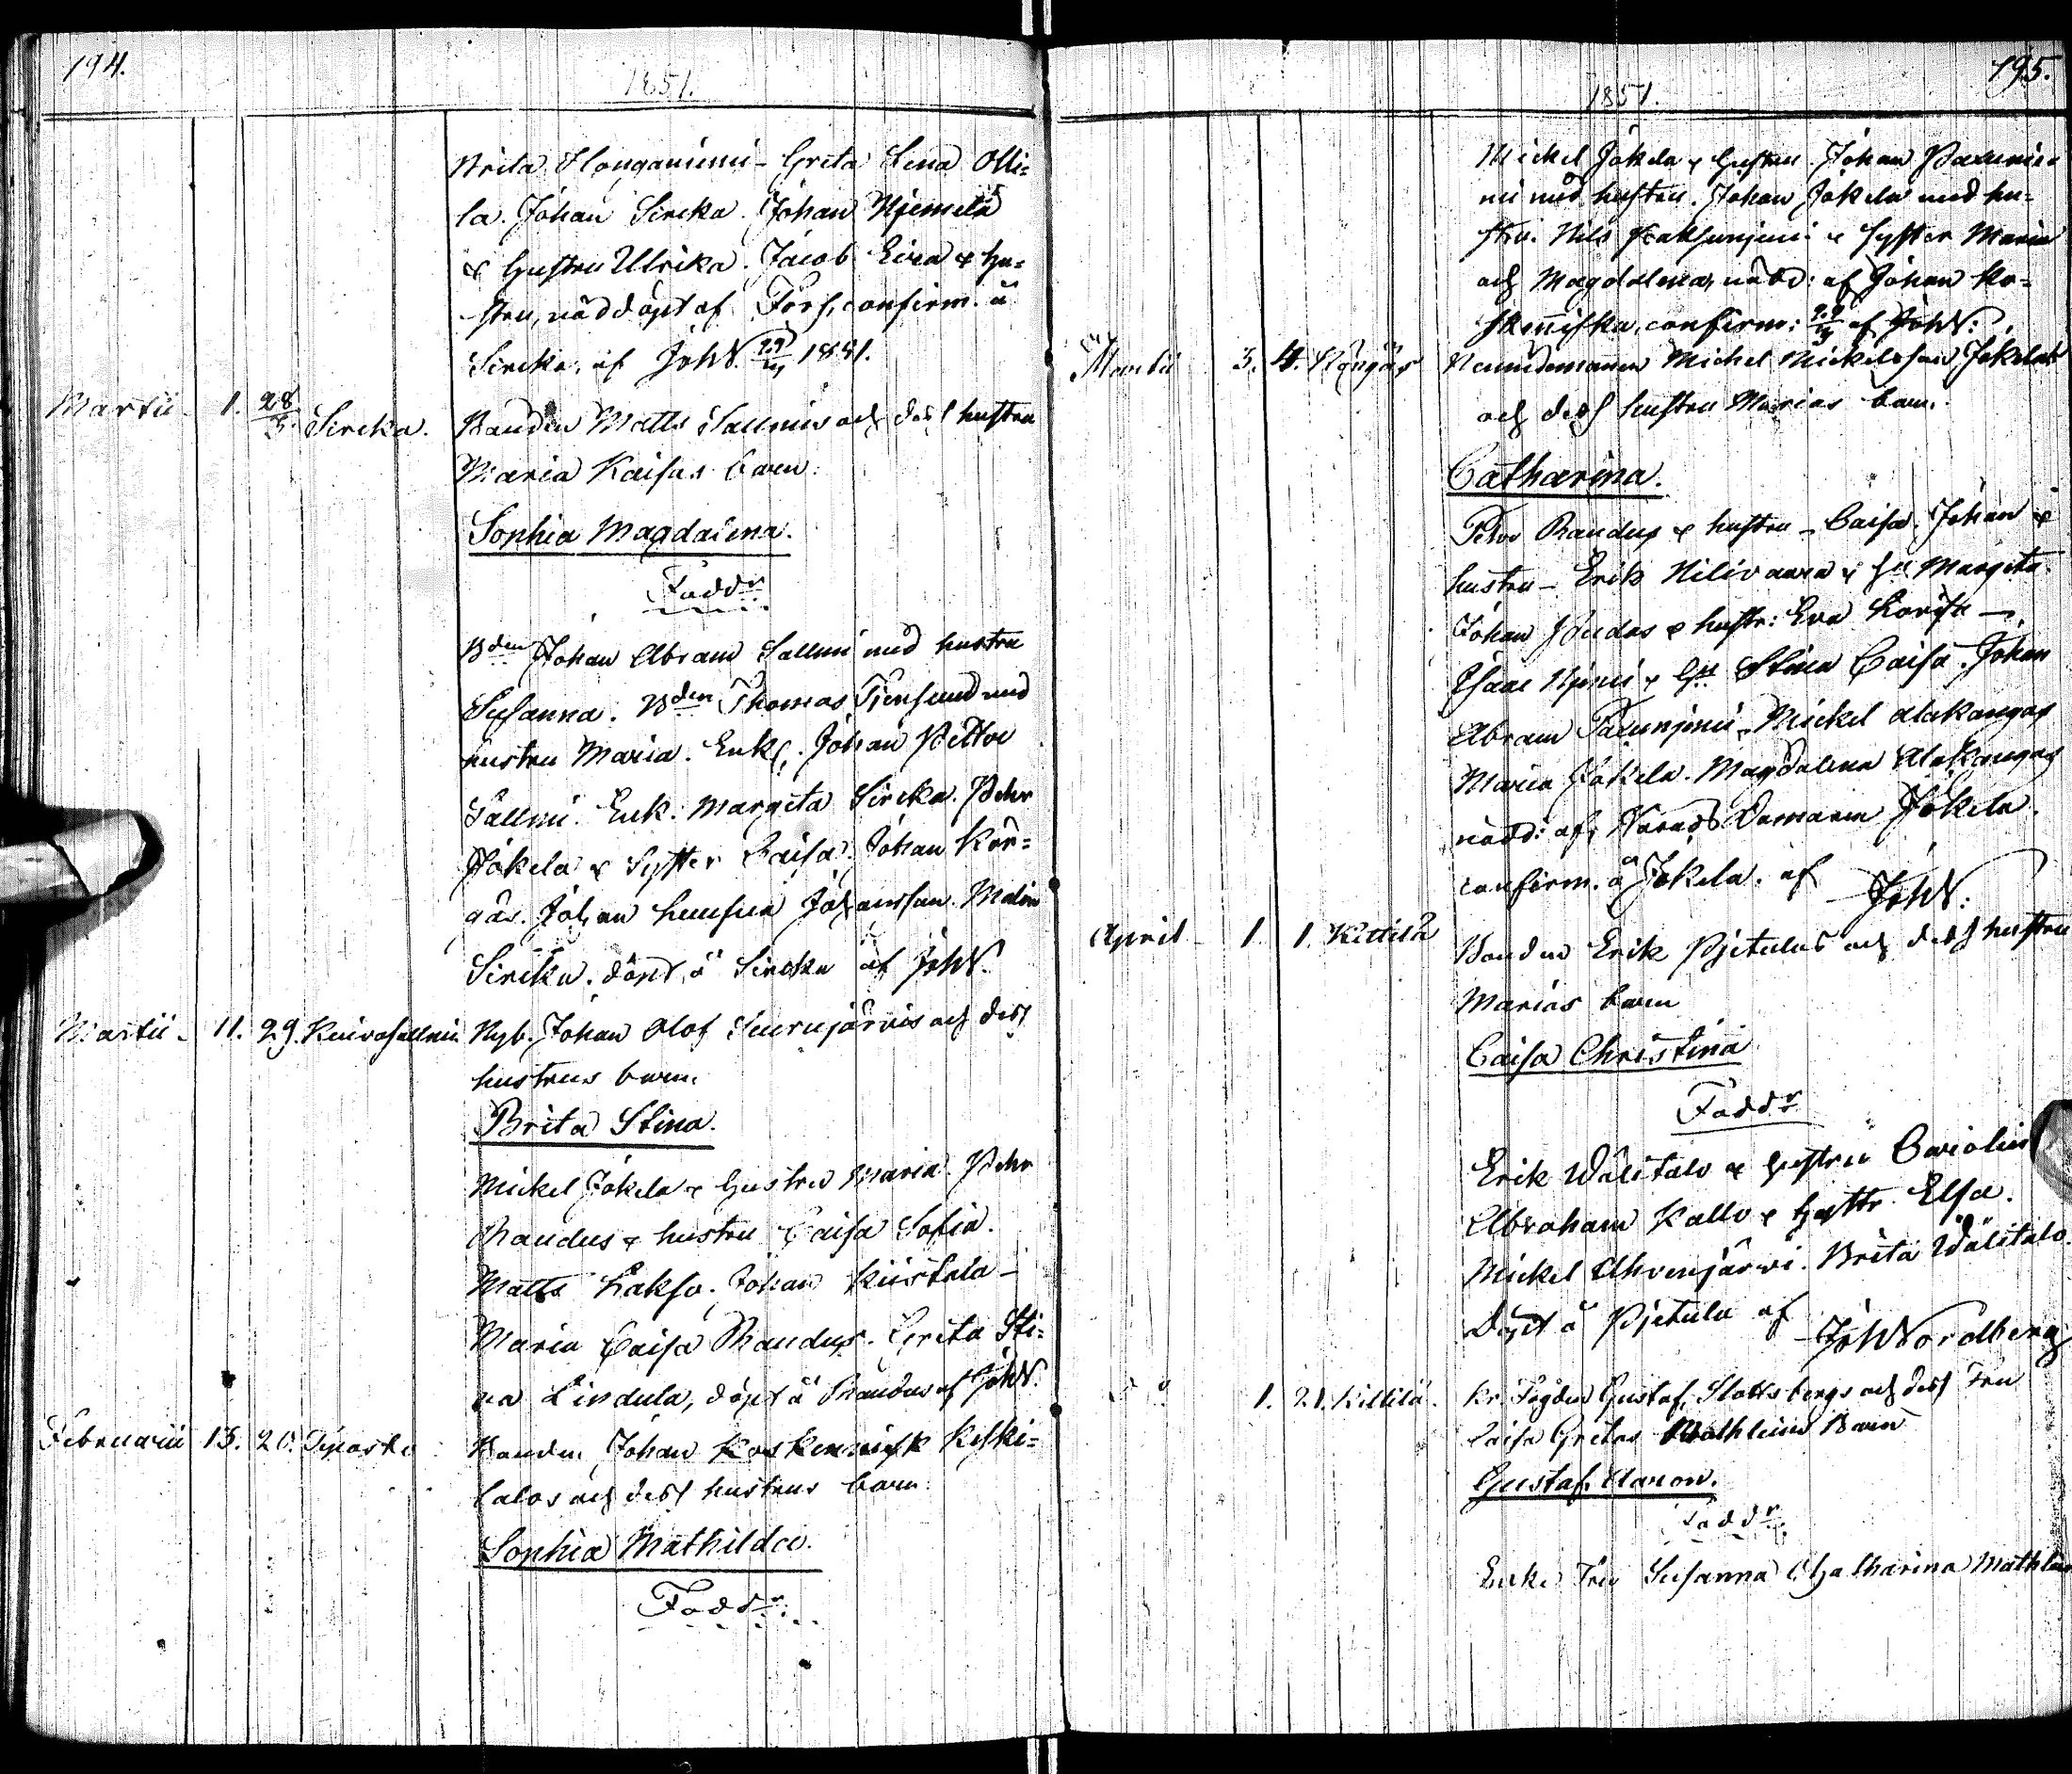 194.
1851.
Brita Honganiemi - Greta Lena Olli=
la. Johan Sircka. Johan Njemelä
& hustru Ulrika. Jacob Eira & hu=
stru, nöddöpt af Fors, confirm. å
Sircka, af JohN. 29/3 1851.
Martii 1. 28/3. Sircka. Bonden Matts Sallmis och dess hustru
Maria Kaisas barn.
Sophia Magdalena.
Faddr
Bden Johan Abram Sallmi med hustru
Susanna. Bden Thomas med
hustru Maria. Enkl. Johan Petter
Sallmi. Enk: Margeta Sircka. Pehr
Jokela & Syster Caisa. Johan Kön=
gäs. Johan Johansson. Malin
Sircka. döpt å Sircka af JohN.
Martii 11. 29. Kuivasallmi. Nyb. Johan Olof Suurujärvis och dess
hustrus barn.
Brita Stina.
Mickel Jokela & hustru Maria. Pehr
Raudus & hustru Caisa Sofia.
Matts Lakso. Johan Kiistala -
Maria Caisa Raudus. Greta Sti=
na Lindula, döpt å Raudus af JohN.
Februarii 15. 20. Tepasto Bonden Johan Koskennisk Keski=
talos och dess hustrus barn.
Sophia Mathilda.
Faddr
195.
1851.
Mickel Jokela & hustru. Johan Paxunie=
mi med hustru. Johan Jokela med hu=
stru. Nils & syster Maria
och Magdalena, nödd: af Johan Ko=
skenniska, confirm: 29/3 af JohN:
Martii 3. 4. Köngäs Nemndemannen Michel Mickelsson Jokelas
och dess hustru Marias barn.
Catharina.
Petter Raudus & hustru - Caisa. Johan &
hustru - Erik Nilivaara & hu Margeta.
Johan Juudas & hustr: Eva Lovisa -
Isaac Njemi & hu Stina Caisa. Johan
Abram Paxunjemi, Mickel Alakangas
Maria Jokela. Magdalena Alakangas
nödd: af Härads Domaren Jokela.
confirm. å Jokela. af JohN:
April 1. 1. Kittilä Bonden Erik Pjetulas och dess hustru
Marias barn
Caisa Christina
Faddr
Erik Wälitalo & hustru Carolina
Abraham Kallo & hustr Elsa.
Mickel Ahvenjärwi. Brita Wälitalo.
Döpt å Pjetula af JohNordberg
1. 21. Kittilä. Kr. Fogden Gustaf Slottsbergs och dess Fru
Caisa Gretas Barn
Gustaf Aaron.
Faddr
Enke Fru Susanna Chatharina